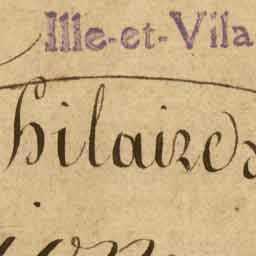 Ille-et-Vila
hilaire
ion